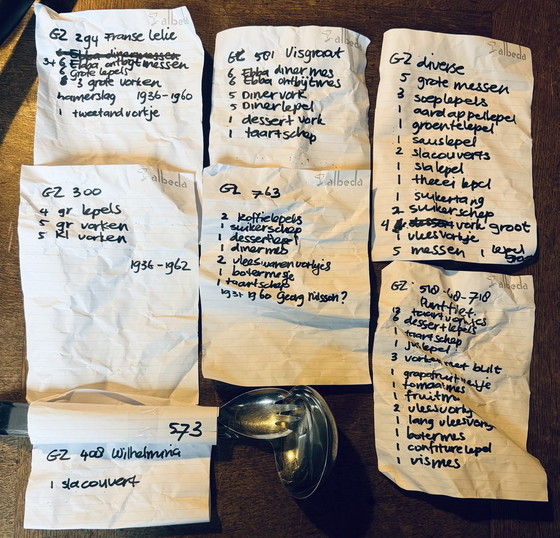 albeda
GZ 294 Franse Lelie
6 Ebba dinermessen
3+6 Ebba ontbytmessen
6 Grote lepels
6 3 grote vorken
hamerslag 1936-1960
1 tweetandvortje
albeda
GZ 501 Visgraat
6 Ebba diner mes
6 Ebba ontbijtmes
5 Diner vork
5 Diner lepel
1 dessert vork
1 taartschep
albeda
GZ diverse
5 grote messen
3 soeplepels
1 aardappellepel
1 groentelepel
1 sauslepel
2 slacouverts
1 slalepel
1 theeei lepel
1 suikertang
2 suikerschep
4 vork groot
1 vleesvortje
5 messen 1 lepel
albeda
GZ 300
4 gr lepels
5 gr vorken
5 kl vorken
1936-1962
albeda
GZ 763
2 koffielepels
1 suikerschep
1 dessertlepel
1 dinermes
2 vleeswarenvorkjes
1 botermesje
1 taartschep
1931 1960 Georg nilsson?
albeda
GZ. 518-48-718
Puntfilet.
12 taartvorkjes
6 dessertlepels
1 taartschep
1 juslepel
3 vorken met bult
1 grapefruit
1 tomaatmes
1 fruitm
2 vleesvork
1 lang vleesvork
1 botermes
1 confiturelepel
1 vismes
573
GZ 408 Wilhelmina
1 slacouvert